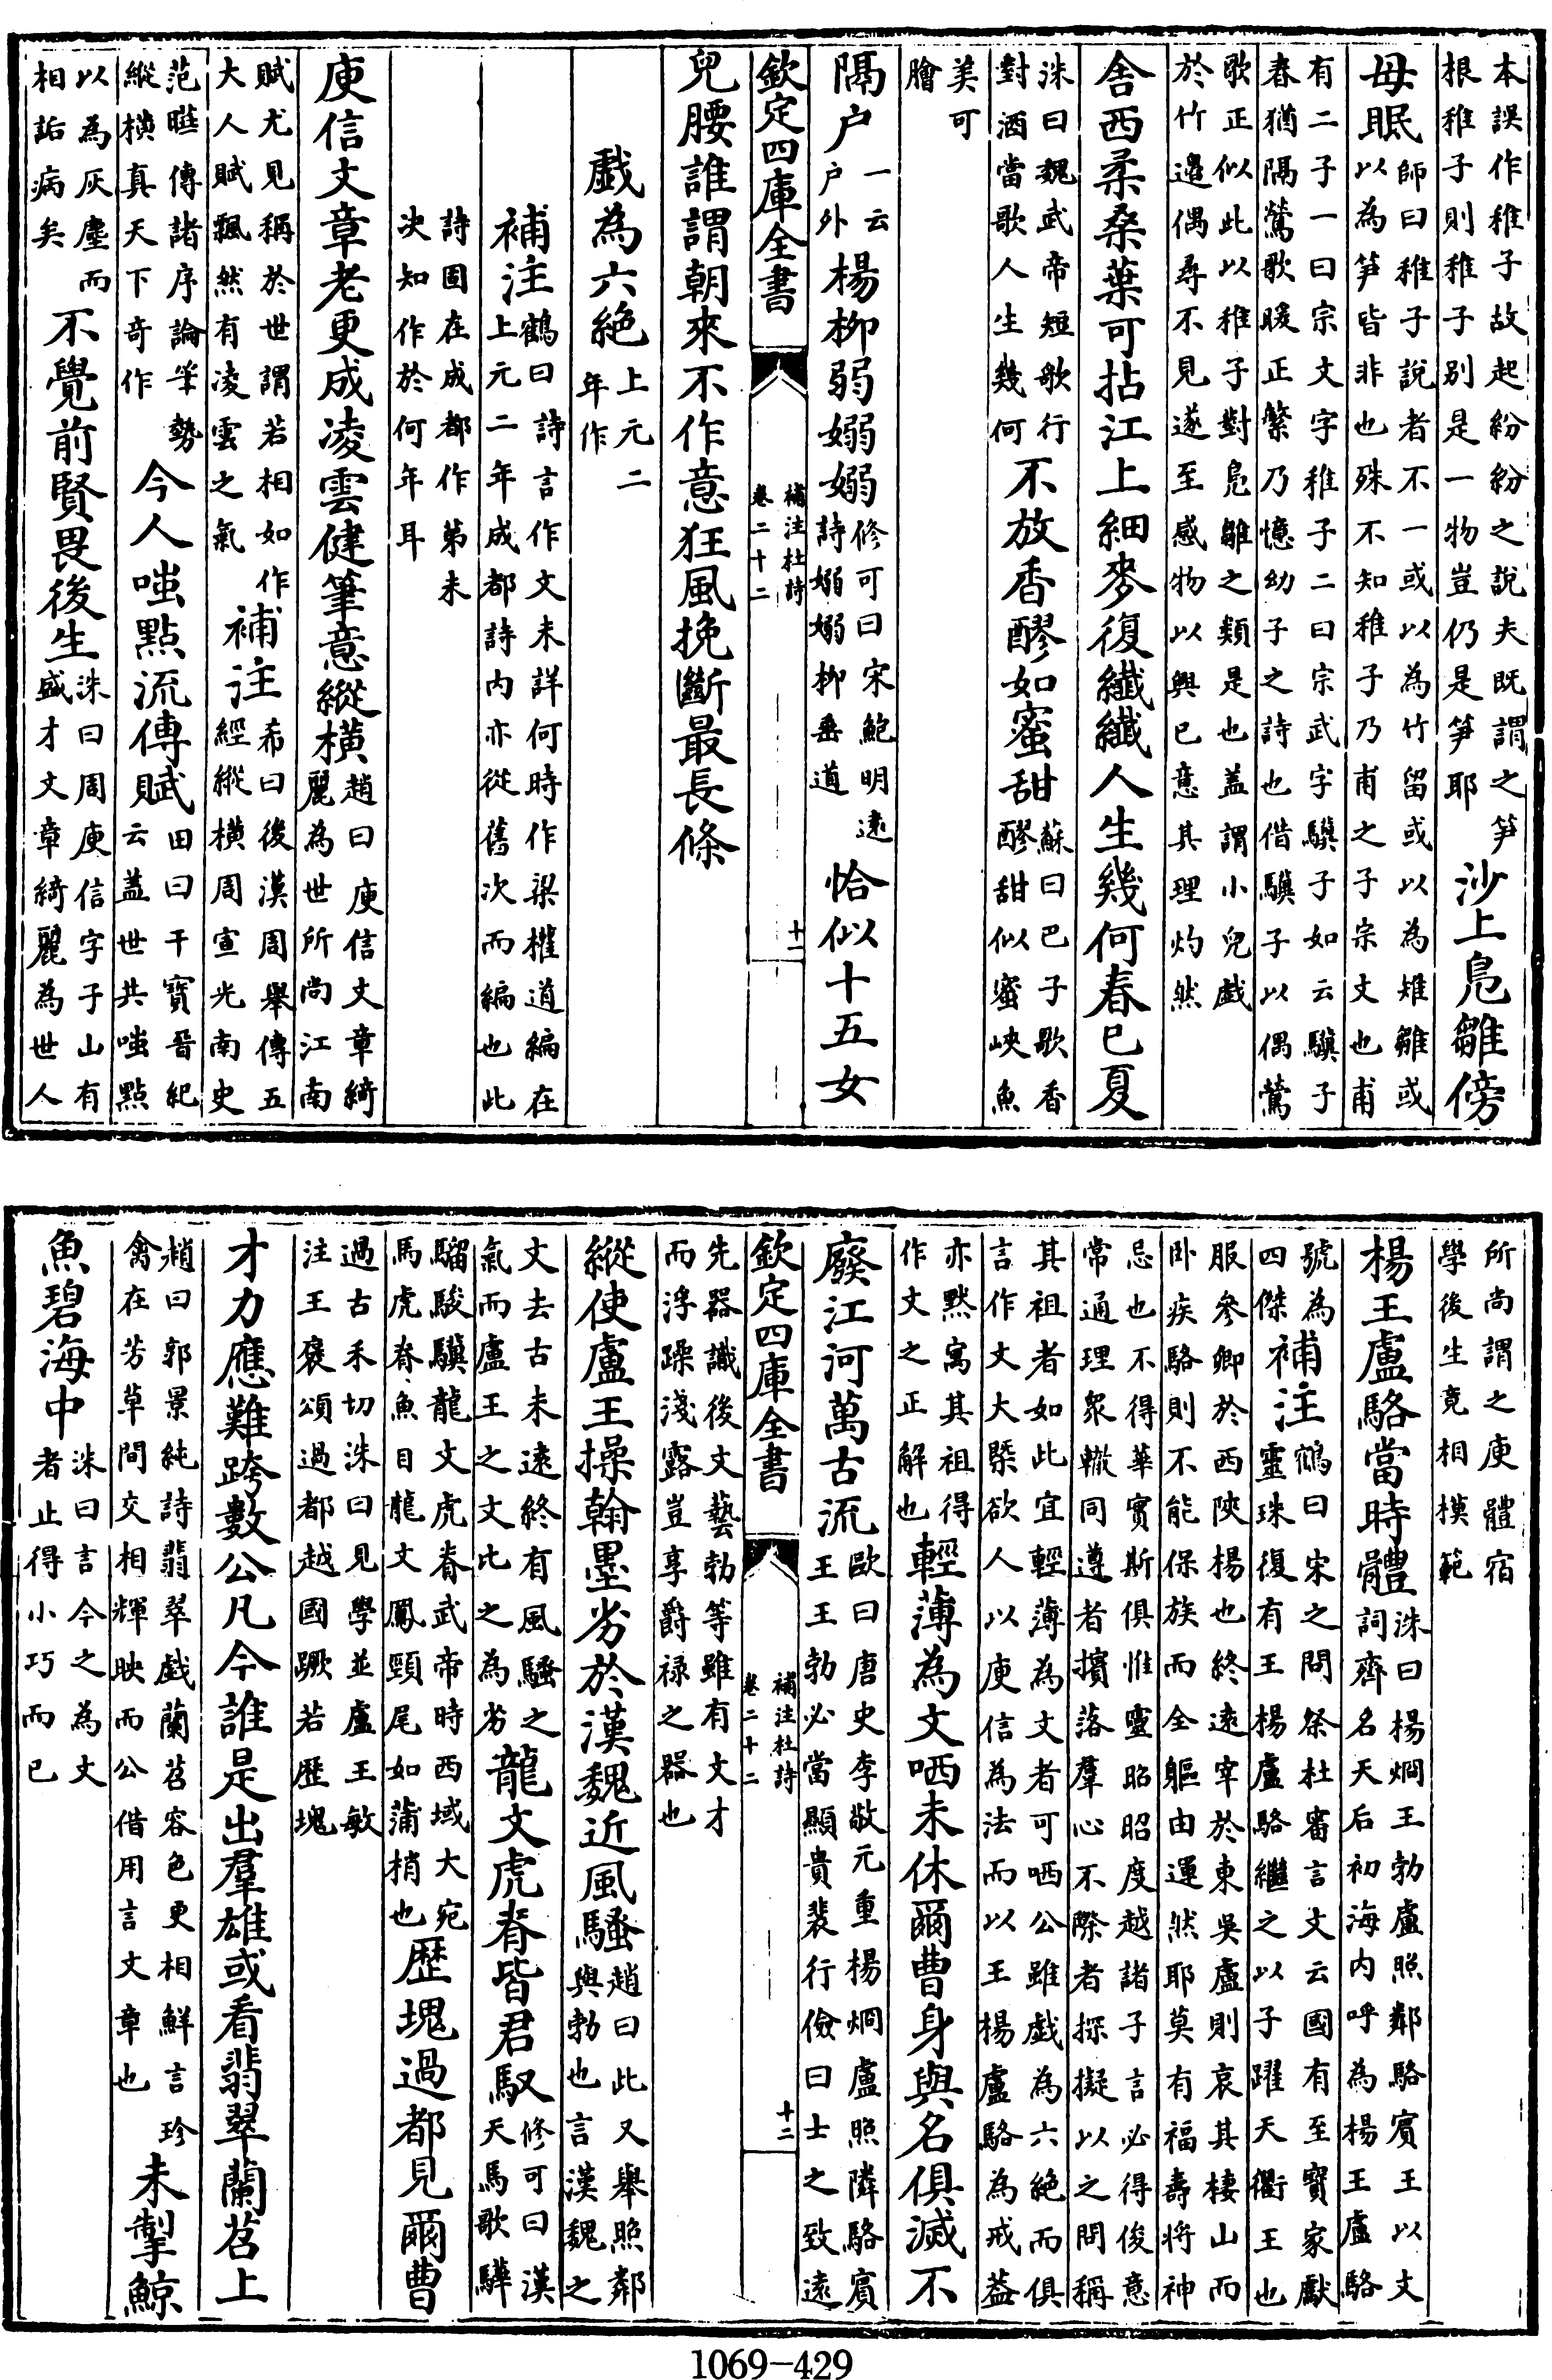 本誤作稚子故起紛紛之說夫既謂之笋
根稚子則稚子别是一物豈仍是笋耶
沙上鳬雛傍
母眠
師曰稚子說者不一或以為竹留或以為雉雛或
以為笋皆非也殊不知稚子乃甫之子宗文也甫
有二子一曰宗文字稚子二曰宗武字驥子如云驥子
春猶隔鶯歌暖正繁乃憶幼子之詩也偕驥子以偶鶯
歌正似此以稚子對鳬雛之類是也盖謂小兒戲
於竹邉偶尋不見遂至感物以興已意其理灼然
舍西柔桑葉可拈江上細麥復纖纖人生幾何春已夏
洙曰魏武帝短歌行
對酒當歌人生幾何
不放香醪如蜜甜
蘇曰巴子歌香
醪甜似蜜峽魚
美可
膾
隔户
一云
户外
楊柳弱嫋嫋
修可曰宋鮑明逺
詩嫋嫋柳垂道
恰似十五女
欽定四庫全書
補注杜詩
卷二十二
十一
兒腰誰謂朝來不作意狂風挽斷最長條
戲為六絶
上元二
年作
補注
鶴曰詩言作文未詳何時作梁權道編在
上元二年成都詩内亦從舊次而編也此
詩固在成都作第未
决知作於何年耳
庾信文章老更成凌雲健筆意縱橫
趙曰庾信文章綺
麗為世所尚江南
賦尤見稱於世謂若相如作
大人賦飄然有凌雲之氣
補注
希曰後漢周舉傳五
經縱橫周宣光南史
范曄傳諸序論筆勢
縱橫真天下奇作
今人嗤點流傳賦
田曰干寶晉紀
云盖世共嗤點
以為灰塵而
相詬病矣
不覺前賢畏後生
洙曰周庾信字子山有
盛才文章綺麗為世人
所尚謂之庾體宿
學後生竟相模範
楊王盧駱當時體
洙曰楊炯王勃盧照鄰駱賓王以文
詞齊名天后初海内呼為楊王盧駱
號為
四傑
補注
鶴曰宋之問祭杜審言文云國有至寶家獻
靈珠復有王楊盧駱繼之以子躍天衢王也
服參卿於西陜楊也終逺宰於東吳盧則哀其棲山而
卧疾駱則不能保族而全軀由運然耶莫有福壽將神
忌也不得華實斯俱惟靈昭昭度越諸子言必得俊意
常通理衆轍同遵者擯落羣心不際者探擬以之問稱
其祖者如此宜輕薄為文者可哂公雖戲為六絶而俱
言作文大槩欲人以庾信為法而以王楊盧駱為戒盖
亦黙寓其祖得
作文之正解也
輕薄為文哂未休爾曹身與名俱滅不
廢江河萬古流
歐曰唐史李敬元重楊炯盧照隣駱賓
王王勃必當顯貴裴行儉曰士之致逺
欽定四庫全書
補注杜詩
卷二十二
十二
先器識後文藝勃等雖有文才
而浮躁淺露豈享爵禄之器也
縱使盧王操翰墨劣於漢魏近風騷
趙曰此又舉照鄰
與勃也言漢魏之
文去古未逺終有風騷之
氣而盧王之文比之為劣
龍文虎脊皆君馭
修可曰漢
天馬歌驊
騮駿驥龍文虎脊武帝時西域大宛
馬虎脊魚目龍文鳳頸尾如蒲梢也
歴塊過都見爾曹
過古禾切洙曰見學並盧王敏
注王褒頌過都越國蹶若歴塊
才力應難跨數公凡今誰是出羣雄或看翡翠蘭苕上
趙曰郭景純詩翡翠戲蘭苕容色更相鮮言珍
禽在芳草間交相輝映而公偕用言文章也
未掣鯨
魚碧海中
洙曰言今之為文
者止得小巧而已
1069-429